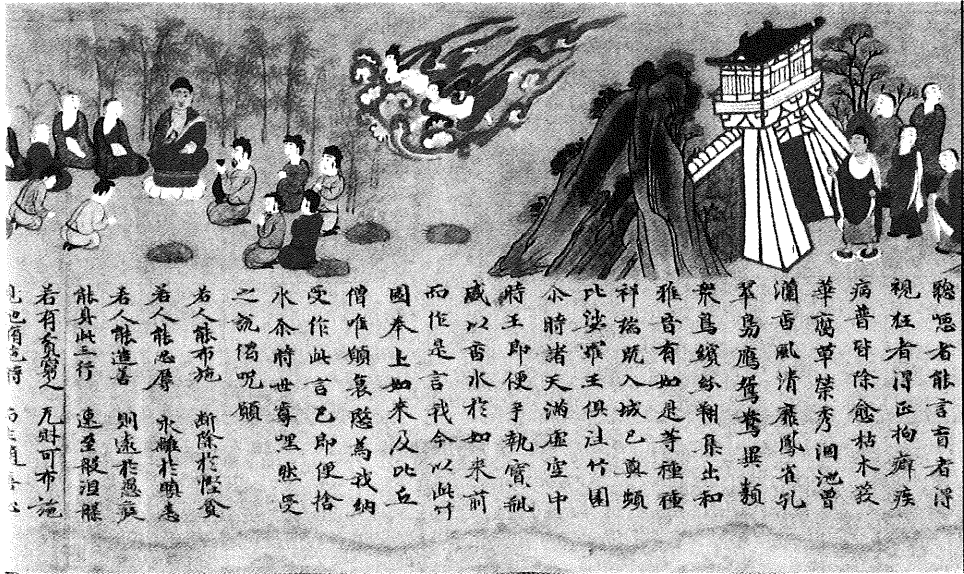 聽瘂者能言盲者得
視狂者得正拘癖疾
病普皆除愈枯木發
華腐草榮秀涸池曾
瀾香風清靡鳳雀孔
翠鳧鷹鴛鴦異類
衆鳥繽紛翔集出和
雅音有如是等種種
祥瑞既入城已與頻
比娑羅王俱往竹園
尒時諸天滿虛空中
時王即便手執寶瓶
盛以香水於如來前
而作是言我今以此竹
園奉上如來及比丘
僧唯願哀愍爲我納
受作此言已即便捨
水尒時世尊嘿然受
之說偈呪願
若人能布施 斷除於慳貪
若人能忍辱 永離於瞋恚
若人能造善 則遠於愚癡
能具此三行 速至般涅槃
若有貧窮人 无財可布施